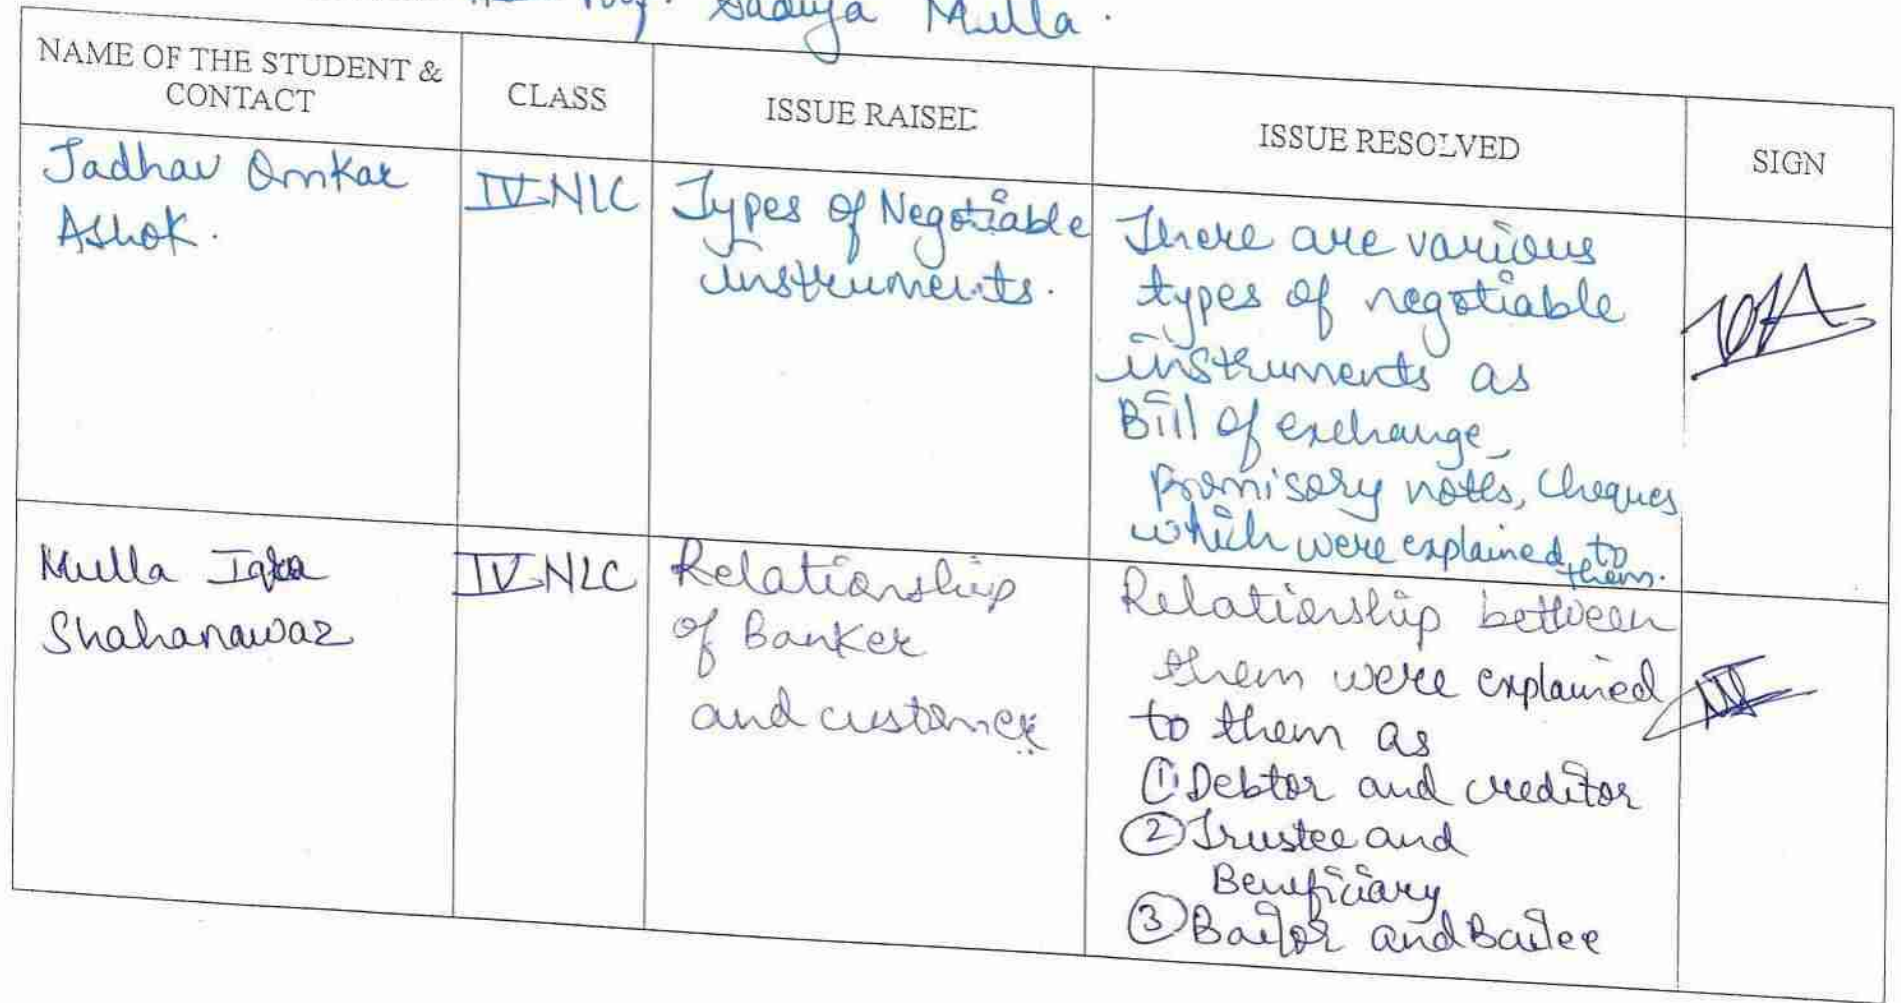 Prof. Sadiya Mulla.
NAME OF THE STUDENT &
CONTACT
CLASS
ISSUE RAISED
ISSUE RESOLVED
SIGN
Jadhav Omkar
Ashok.
IV NLC
Types of Negotiable
instruments.
There are various
types of negotiable
instruments as
Bill of exchange,
promisory notes, cheques
which were explained to
them.
Mulla Iqra
Shahanawaz
IV NLC
Relationship
of Banker
and customer
Relationship between
them were explained
to them as
① Debtor and creditor
② Trustee and
Beneficiary
③ Bailor and Bailee